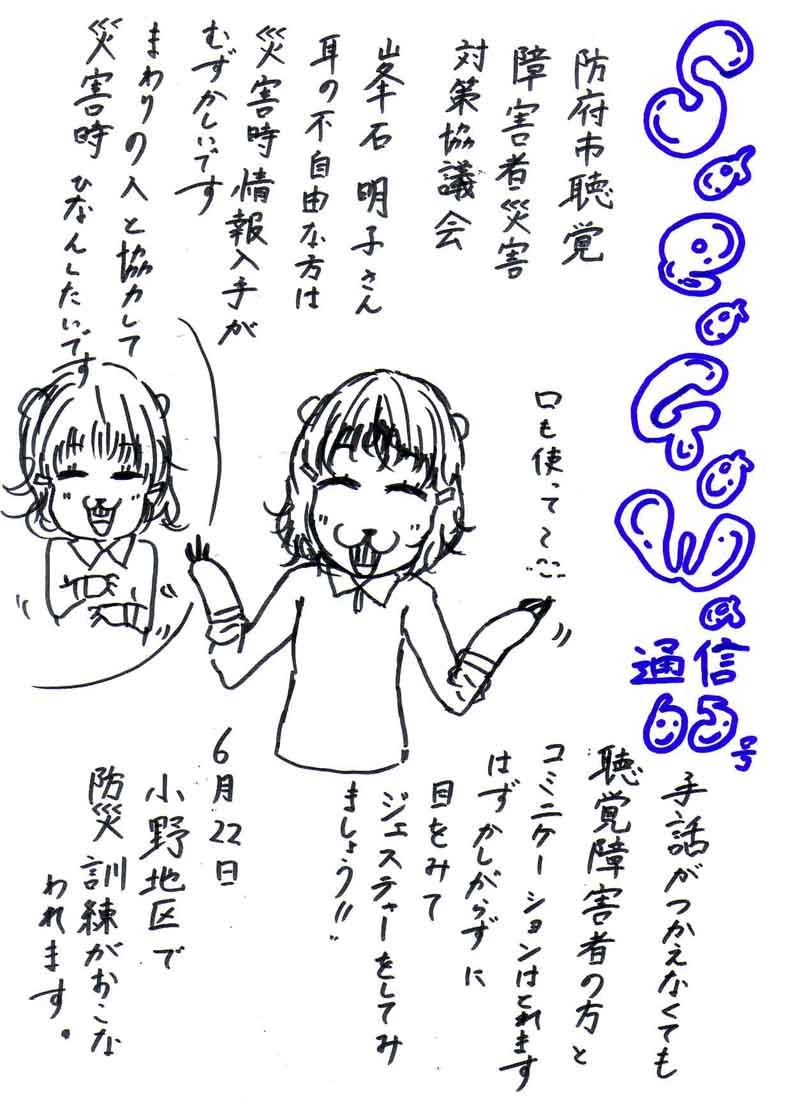 S.P.G.W.
通信
65号
防府市聴覚
障害者災害
対策協議会
峯石 明子さん
耳の不自由な方は
災害時 情報入手が
むずかしいです
まわりの人と協力して
災害時 ひなんしたいです
口も使って〜
手話がつかえなくても
聴覚障害者の方と
コミニケーションはとれます
はずかしがらずに
目をみて
ジェスチャーをしてみ
ましょう!!
6月22日
小野地区で
防災訓練がおこな
われます。